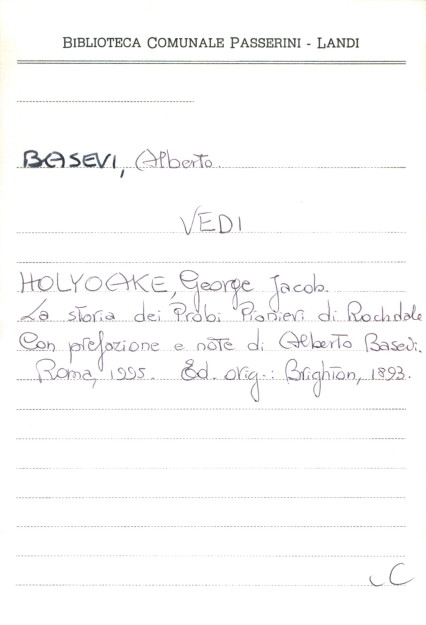 BIBLIOTECA COMUNALE PASSERINI - LANDI
BASEVI, Alberto
VEDI
HOLYOAKE, George Jacob.
La storia dei Probi Pionieri di Rochdale
Con prefazione e note di Alberto Basevi.
Roma, 1995. Ed. orig.: Brighton, 1893.